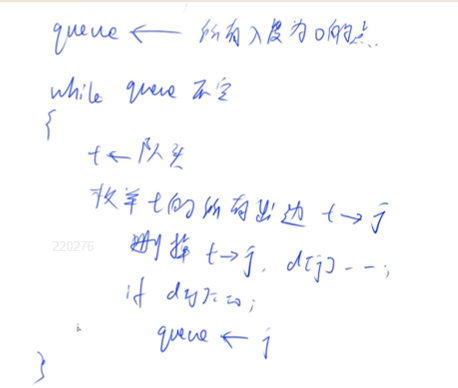 queue ← 所有入度为0的点
while queue 不空
{
t ← 队头
枚举 t 的所有出边 t → j
删掉 t → j, d[j]--;
220276
if d[j]==0;
queue ← j
}